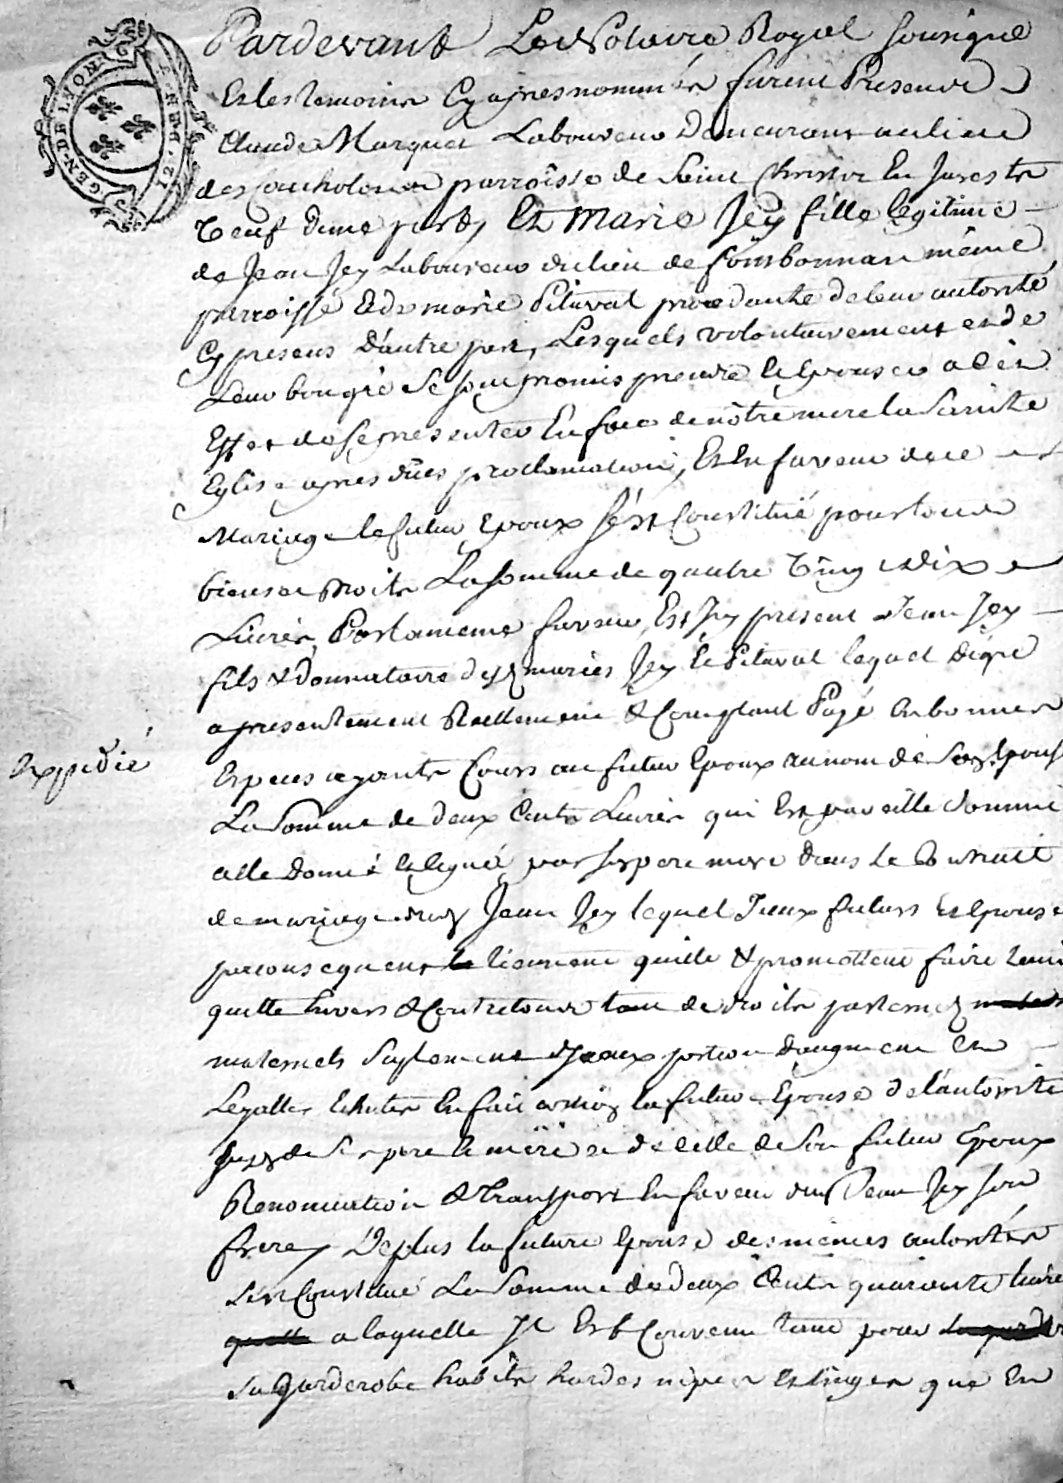 GEN·DE LYON
Pardevant Le Notaire Royal Sousigné
Et les temoins Cy apres nommés furent Presents
Claude Marquet Laboureur Demeurant au lieu
des parroisse de Saint Christo En Jarest
veuf dune part, Et Marie Jey fille legitime
de Jean Jey Laboureur du lieu de même
parroisse Et de marie Pitaval procedante de leur autorité
Cy presens D'autre part, Lesquels volontairement et de
Leur bongré Se sont promis prendre & Epouser a cet
Effet de se presenter En face de nôtre mere la Sainte
Eglise apres dües proclamations, Et En faveur de ce
Mariage le futur Epoux s'est Constitué pour tous
biens et Droits La somme de quatre vingt dix
Livres, Par la meme faveur Est Jcy present Jean Jey
fils & Donnataire desd mariés Jey & Pitaval lequel de gré
a presentement Reellement & Comptant Payé En bonnes
Especes ayants Cours au futur Epoux au nom de Sad Epouse
Expedié
La Somme de deux Cents Livres qui Est pareille Somme
a elle donné & leguée par ses pere mere dans le Contrait
de mariage dud Jean Jey lequel Jceux futurs Epoux
par consequent tiennent quitte & promettent faire tenir
quitte Envers & Contre tous tant de droits paternels
maternels Suplement d'Jceaux portion d'augment
Legattes Echutes En fait la future Epouse de l'autorité
de Ses pere & mere et de celle de Son futur Epoux
Renonciation & Transport En faveur dud Jean Jey son
frere, De plus la future Epouse des mêmes autorités
S'est Constitué La Somme de deux Cents quarante livres
a laquelle Jl Est Convenu tant pour
Sa Garderobe habits hardes nipes et linges que En